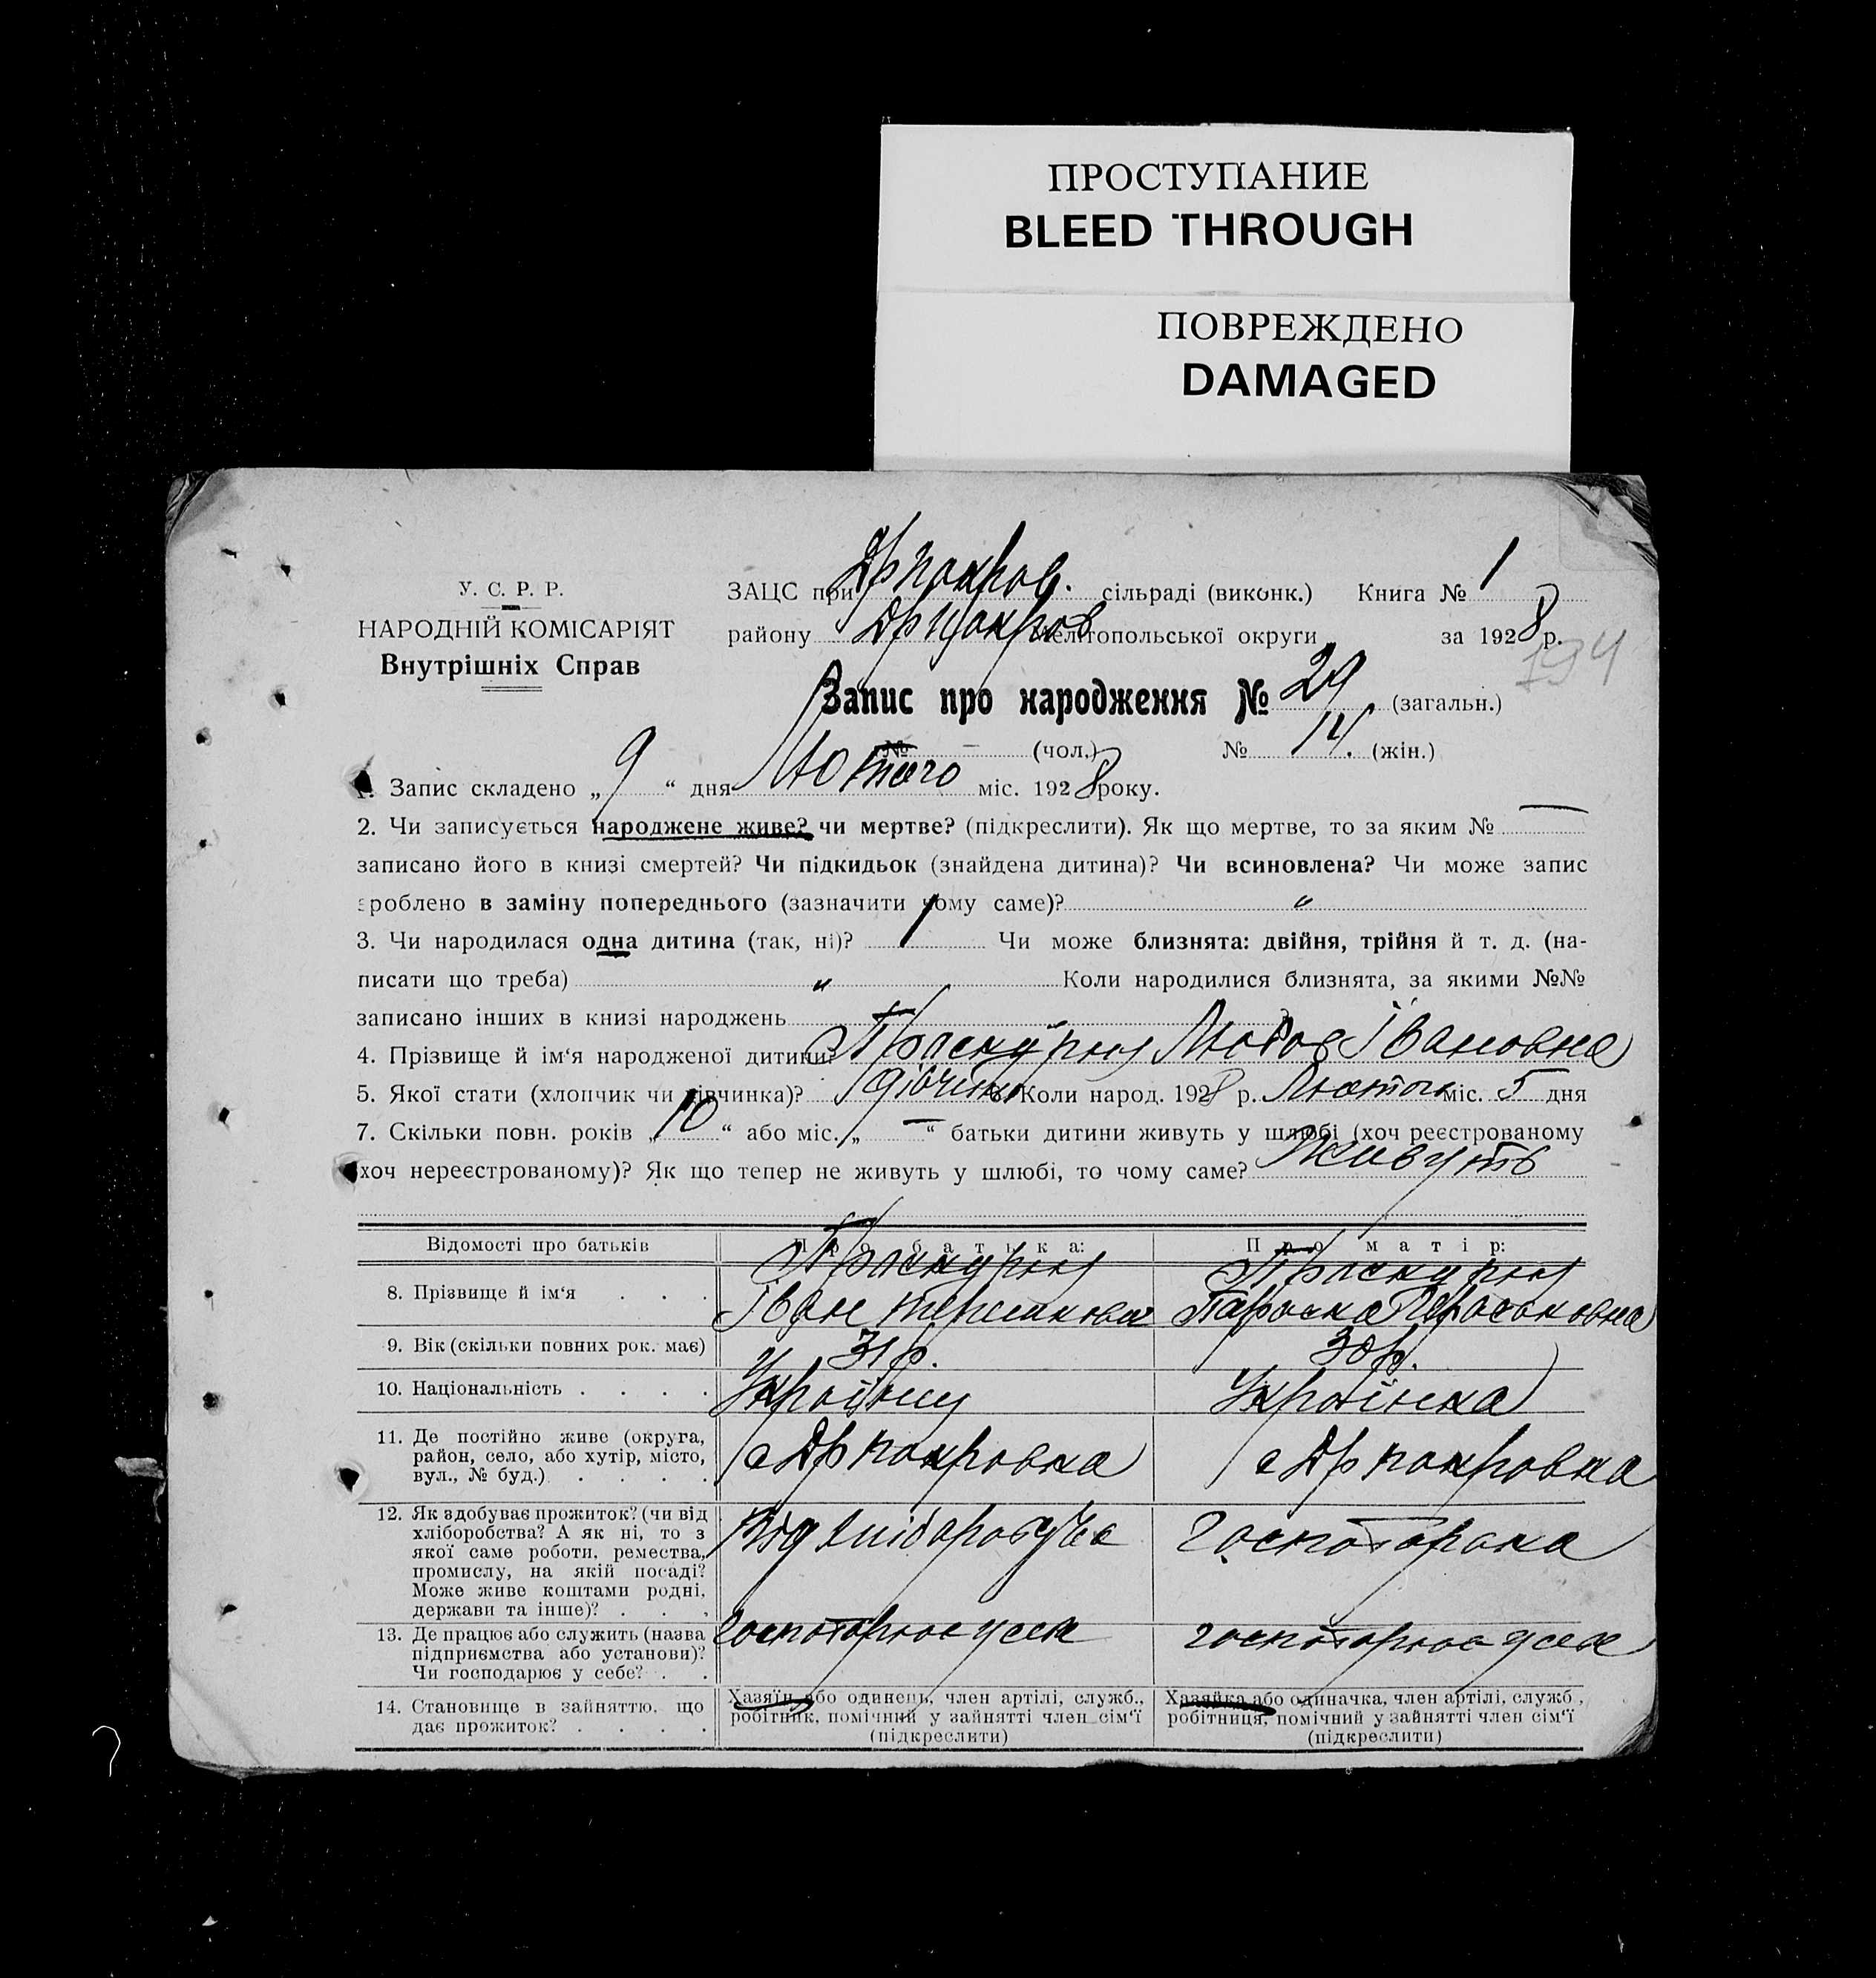 ПРОСТУПАНИЕ
BLEED THROUGH
ПОВРЕЖДЕНО
DAMAGED
У. С. Р. Р.
НАРОДНІЙ КОМІСАРІЯТ
Внутрішніх Справ
ЗАЦС при Др покров. сільраді (виконк.) Книга № 1
району Др покров Мелітопольської округи за 1928 р.
194
Запис про народження № 29 (загальн.)
№ — (чол.) № 14. (жін.)
1. Запис складено „ 9 “ дня Лютого міс. 1928 року.
2. Чи записується народжене живе? чи мертве? (підкреслити). Як що мертве, то за яким № —
записано його в книзі смертей? Чи підкидьок (знайдена дитина)? Чи всиновлена? Чи може запис
зроблено в заміну попереднього (зазначити чому саме)? "
3. Чи народилася одна дитина (так, ні)? 1 Чи може близнята: двійня, трійня й т. д. (на-
писати що треба) " Коли народилися близнята, за якими №№
записано інших в книзі народжень
4. Прізвище й ім‘я народженої дитини? Проскурня Любов Івановна
5. Якої стати (хлопчик чи дівчинка)? дівчінка 6. Коли народ. 1928 р. Лютого міс. 5 дня
7. Скільки повн. років „ 10 “ або міс. „ — “ батьки дитини живуть у шлюбі (хоч реєстрованому
хоч нереєстрованому)? Як що тепер не живуть у шлюбі, то чому саме? Живуть
Відомості про батьків Про батька: Про матір:
8. Прізвище й ім‘я . . . Проскурня Проскурня
Іван Параска Гераськовна
9. Вік (скільки повних рок. має) 31 р. 30 р.
10. Національність . . . . Україніц Українка
11. Де постійно живе (округа,
район, село, або хутір, місто,
вул., № буд.) . . . .
с Др покровка с Др покровка
12. Як здобуває прожиток? (чи від
хліборобства? А як ні, то з
якої саме роботи, ремества,
промислу, на якій посаді?
Може живе коштами родні,
держави та інше)? . . .
Від господарка
13. Де працює або служить (назва
підприємства або установи)?
Чи господарює у себе? . .
господарює у себе господарює у себе
14. Становище в зайняттю, що
дає прожиток? . . . .
Хазяїн або одинець, член артілі, служб.,
робітник, помічний у зайнятті член сім‘ї
(підкреслити)
Хазяйка або одиначка, член артілі, служб.,
робітниця, помічний у зайнятті член сім‘ї
(підкреслити)